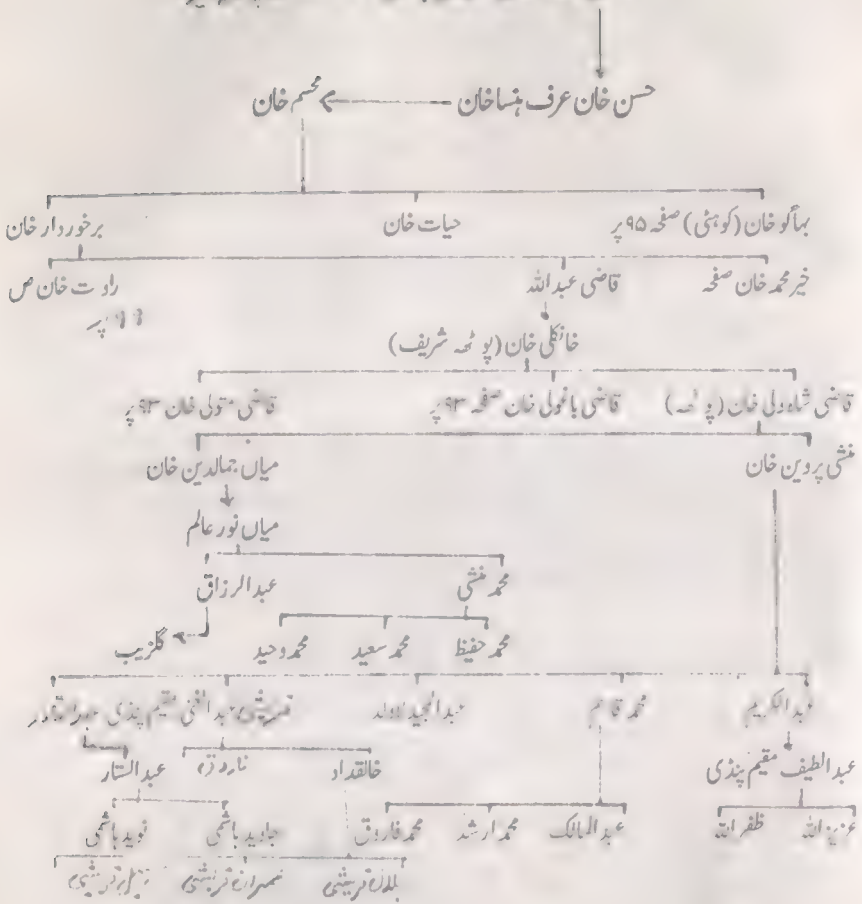 حسن خان عرف ہنسا خان محسم خان
بہاگو خان (کوہٹی) صفحہ ۹۵ پر حیات خان برخوردار خان
خیر محمد خان صفحہ قاضی عبداللہ راوت خان ص
پر
خانکلی خان (پوٹھہ شریف)
قاضی شاہ ولی خان (پوٹھہ) قاضی باغولی خان صفحہ ۹۳ پر قاضی متولی خان ۹۳ پر
منشی پروین خان میاں جمالدین خان
میاں نور عالم
محمد منشی عبدالرزاق
محمد حفیظ محمد سعید محمد وحید گلزیب
عبدالکریم محمد قاسم عبدالمجید لاولد عبدالغنی مقیم پنڈی
عبداللطیف مقیم پنڈی خالقداد عبدالستار
عزیز اللہ ظفر اللہ عبدالمالک محمد ارشد محمد فاروق جاوید ہاشمی نوید ہاشمی
بلال قریشی قریشی